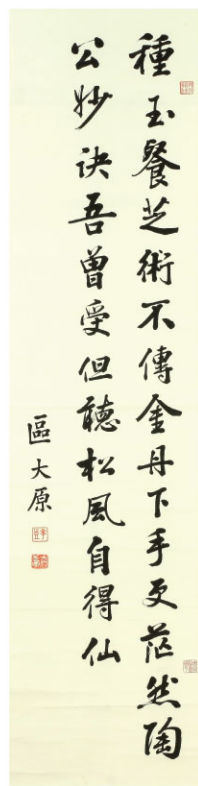 種玉餐芝術不傳金丹下手更茫然陶
公妙訣吾曾受但聽松風自得仙
區大原